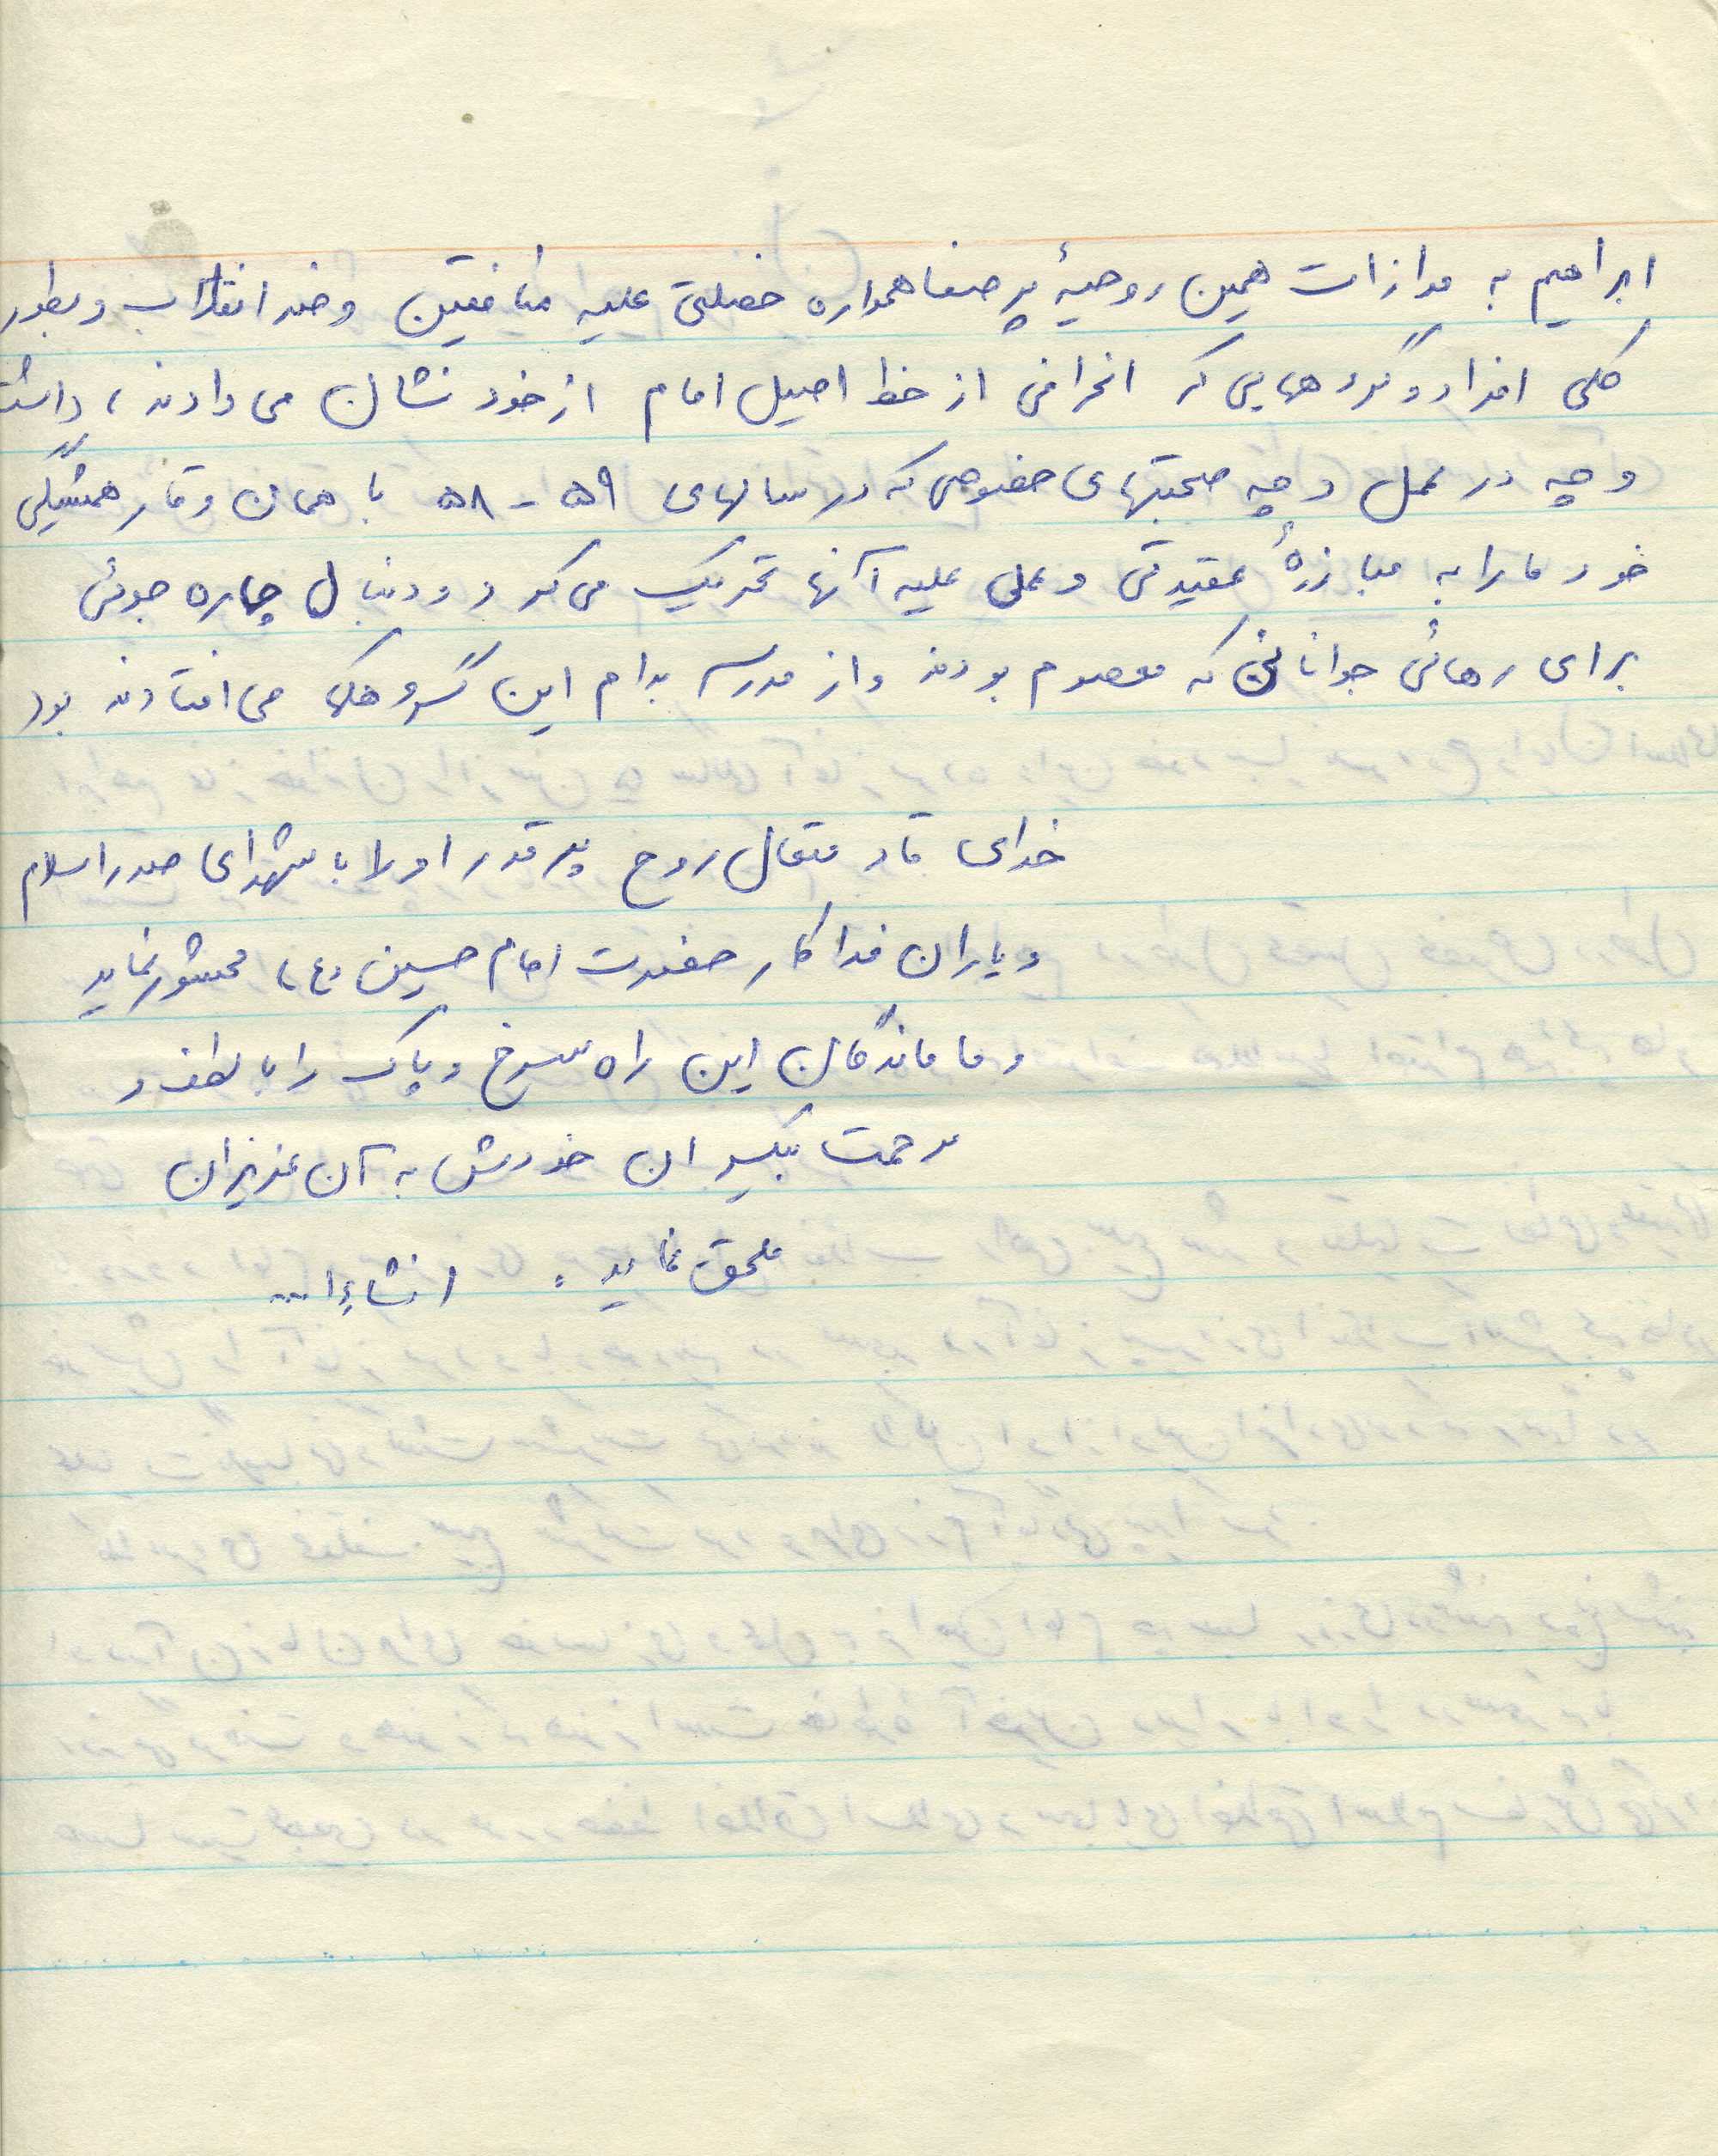 ابراهیم به موازات همین روحیهٔ پر صفا همواره خصلتی علیه منافقین و ضد انقلاب و بطور
کلی افراد و گروههایی که انحرافی از خط اصیل امام از خود نشان می دادند، داشت
و چه در عمل و چه صحبتهای خصوصی که در سالهای ۵۹ - ۵۸ با همان وقار همیشگی
خود ما را به مبارزهٔ عقیدتی و عملی علیه آنها تحریک می کرد و دنبال چاره جوئی
برای رهائی جوانانی که معصوم بودند و از مدرسه بدام این گروهکها می افتادند بود
خدای قادر متعال روح پر قدر او را با شهدای صدر اسلام
و یاران فداکار حضرت امام حسین (ع) محشور نماید
و ما ماندگان این راه سرخ و پاک را با لطف و
رحمت بیکران خودش به آن عزیزان
ملحق نماید. انشاءا...